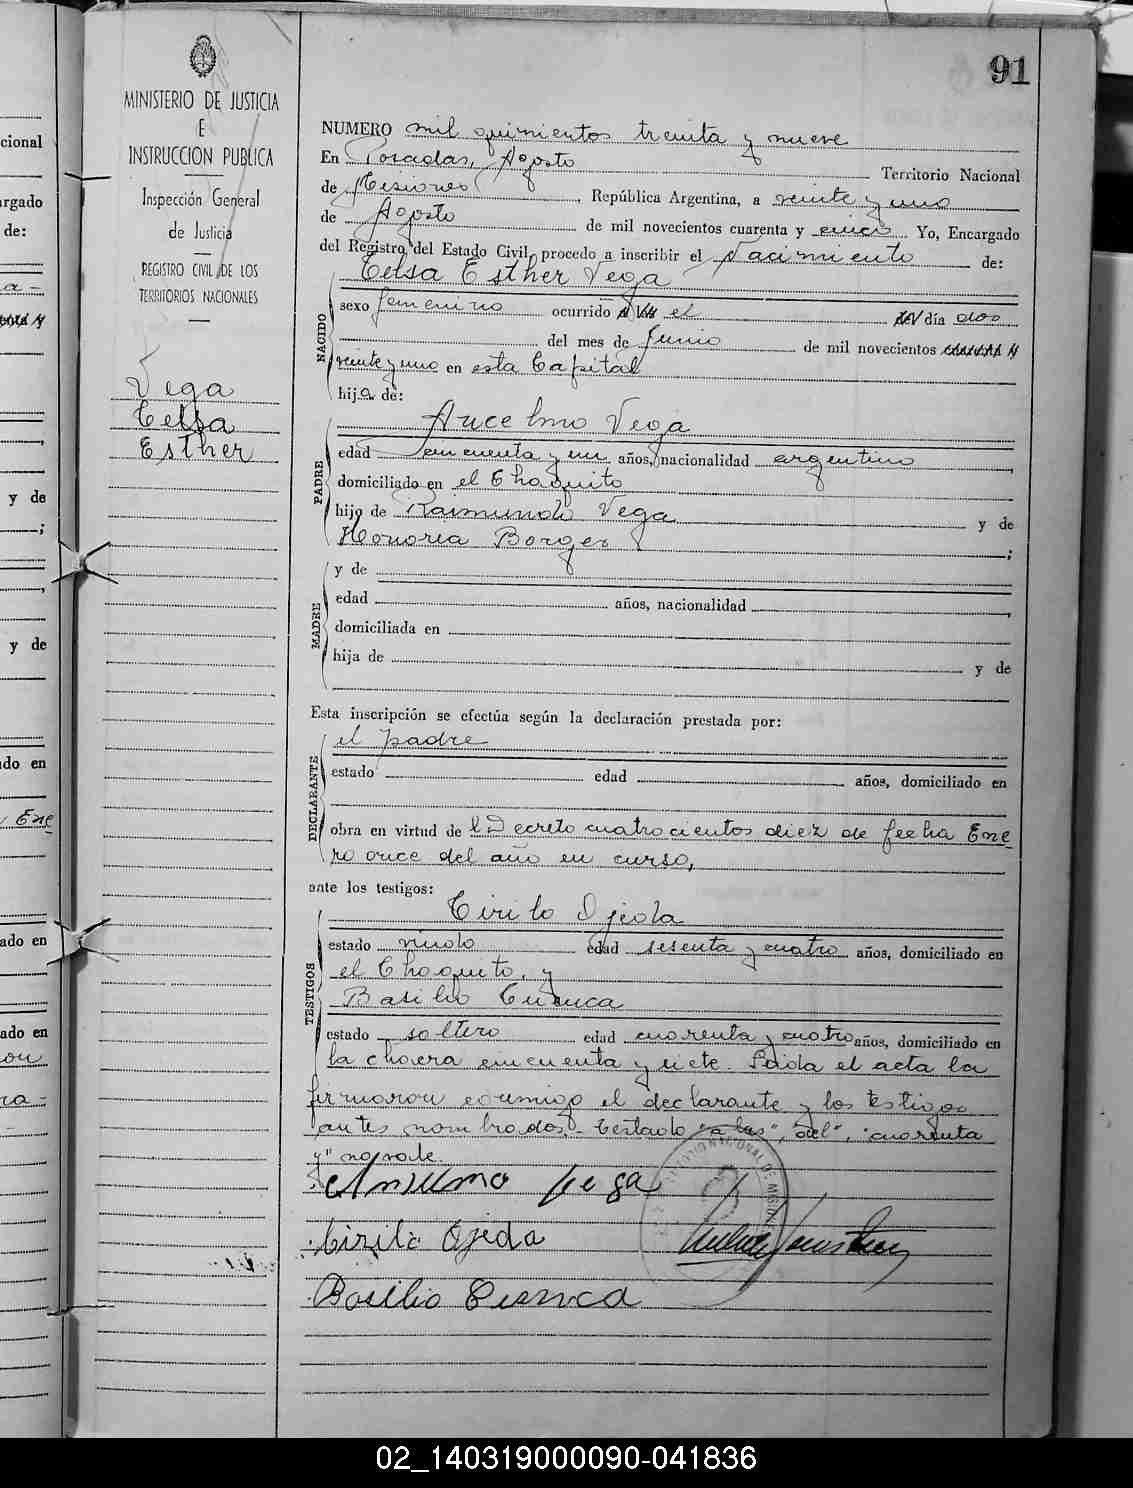 91
MINISTERIO DE JUSTICIA
E
INSTRUCCION PUBLICA
Inspección General
de Justicia
REGISTRO CIVIL DE LOS
TERRITORIOS NACIONALES
Vega
Celsa
Esther
NUMERO mil quinientos treinta y nueve
En Posadas, Agosto Territorio Nacional
de Misiones, República Argentina, a veinte y uno
de Agosto de mil novecientos cuarenta y cinco Yo, Encargado
del Registro del Estado Civil, procedo a inscribir el Nacimiento de:
Celsa Esther Vega
NACIDO
sexo femenino ocurrido el día dos
del mes de Junio de mil novecientos
veinte y uno en esta Capital
hija de:
PADRE
Ancelmo Vega
edad cincuenta y un años, nacionalidad argentino,
domiciliado en el Chaquito
hijo de Raimundo Vega y de
Honoria Borges;
MADRE
y de
edad años, nacionalidad,
domiciliada en
hija de y de
Esta inscripción se efectúa según la declaración prestada por:
DECLARANTE
el padre
estado edad años, domiciliado en
obra en virtud del Decreto cuatrocientos diez de fecha Ene
ro once del año en curso,
ante los testigos:
TESTIGOS
Cirilo Ojeda
estado viudo edad sesenta y cuatro años, domiciliado en
el Chaquito, y
Basilio Cuenca
estado soltero edad cuarenta y cuatro años, domiciliado en
la chacra cincuenta y siete. Leida el acta la
firmaron conmigo el declarante y los testigos
antes nombrados.- Testado "a las", "del", "cuarenta
y" no vale.
Anselmo Vega
Cirilo Ojeda
Basilio Cuenca
cional
argado
de:
y de
;
y de
do en
Ene
ado en
ado en
02_140319000090-041836